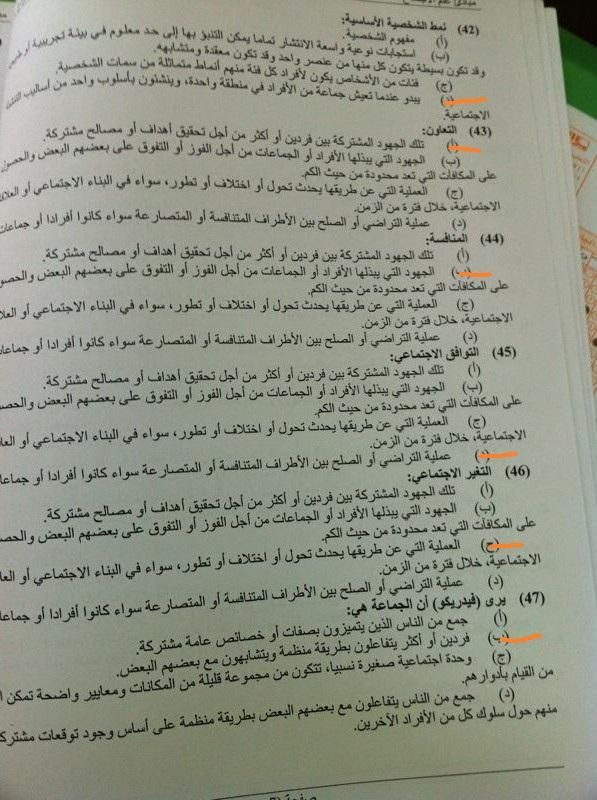 مبادئ علم الاجتماع
(42) نمط الشخصية الأساسية:
(أ) مفهوم الشخصية.
(ب) استجابات نوعية واسعة الانتشار تماما يمكن التنبؤ بها إلى حد معلوم في بيئة تجريبية أو
وقد تكون بسيطة يتكون كل منها من عنصر واحد وقد تكون معقدة ومتشابهه.
(ج) فئات من الأشخاص يكون لأفراد كل فئة منهم أنماط متماثلة من سمات الشخصية.
(د) يبدو عندما تعيش جماعة من الأفراد في منطقة واحدة، وينشئون بأسلوب واحد من أساليب
الاجتماعية.
(43) التعاون:
(أ) تلك الجهود المشتركة بين فردين أو أكثر من أجل تحقيق أهداف أو مصالح مشتركة.
(ب) الجهود التي يبذلها الأفراد أو الجماعات من أجل الفوز أو التفوق على بعضهم البعض والحصو
على المكافآت التي تعد محدودة من حيث الكم.
(ج) العملية التي عن طريقها يحدث تحول أو اختلاف أو تطور، سواء في البناء الاجتماعي أو العلا
الاجتماعية، خلال فترة من الزمن.
(د) عملية التراضي أو الصلح بين الأطراف المتنافسة أو المتصارعة سواء كانوا أفرادا أو جماعات
(44) المنافسة:
(أ) تلك الجهود المشتركة بين فردين أو أكثر من أجل تحقيق أهداف أو مصالح مشتركة.
(ب) الجهود التي يبذلها الأفراد أو الجماعات من أجل الفوز أو التفوق على بعضهم البعض والحصو
على المكافآت التي تعد محدودة من حيث الكم.
(ج) العملية التي عن طريقها يحدث تحول أو اختلاف أو تطور، سواء في البناء الاجتماعي أو العلا
الاجتماعية، خلال فترة من الزمن.
(د) عملية التراضي أو الصلح بين الأطراف المتنافسة أو المتصارعة سواء كانوا أفرادا أو جماعا
(45) التوافق الاجتماعي:
(أ) تلك الجهود المشتركة بين فردين أو أكثر من أجل تحقيق أهداف أو مصالح مشتركة.
(ب) الجهود التي يبذلها الأفراد أو الجماعات من أجل الفوز أو التفوق على بعضهم البعض والحصو
على المكافآت التي تعد محدودة من حيث الكم.
(ج) العملية التي عن طريقها يحدث تحول أو اختلاف أو تطور، سواء في البناء الاجتماعي أو العلا
الاجتماعية، خلال فترة من الزمن.
(د) عملية التراضي أو الصلح بين الأطراف المتنافسة أو المتصارعة سواء كانوا أفرادا أو جماعا
(46) التغير الاجتماعي:
(أ) تلك الجهود المشتركة بين فردين أو أكثر من أجل تحقيق أهداف أو مصالح مشتركة.
(ب) الجهود التي يبذلها الأفراد أو الجماعات من أجل الفوز أو التفوق على بعضهم البعض والحص
على المكافآت التي تعد محدودة من حيث الكم.
(ج) العملية التي عن طريقها يحدث تحول أو اختلاف أو تطور، سواء في البناء الاجتماعي أو العا
الاجتماعية، خلال فترة من الزمن.
(د) عملية التراضي أو الصلح بين الأطراف المتنافسة أو المتصارعة سواء كانوا أفرادا أو جماعا
(47) يرى (فيدريكو) أن الجماعة هي:
(أ) جمع من الناس الذين يتميزون بصفات أو خصائص عامة مشتركة.
(ب) فردين أو أكثر يتفاعلون بطريقة منظمة ويتشابهون مع بعضهم البعض.
(ج) وحدة اجتماعية صغيرة نسبيا، تتكون من مجموعة قليلة من المكانات ومعايير واضحة تمكن ا
من القيام بأدوارهم.
(د) جمع من الناس يتفاعلون مع بعضهم البعض بطريقة منظمة على أساس وجود توقعات مشترك
منهم حول سلوك كل من الأفراد الآخرين.